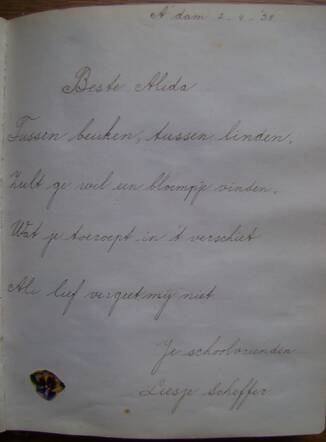 A'dam 2-4-'38
Beste Alida
Tussen beuken, tussen linden,
Zult ge wel een bloempje vinden.
Wat je toeroept in 't verschiet
Ali lief vergeet mij niet.
Je schoolvriendin
Liesje Scheffer